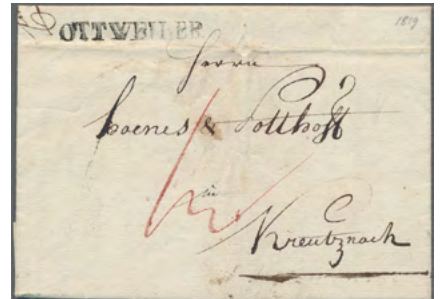 OTTWEILER
1819
Herrn
& Potthoff
in
Kreutznach